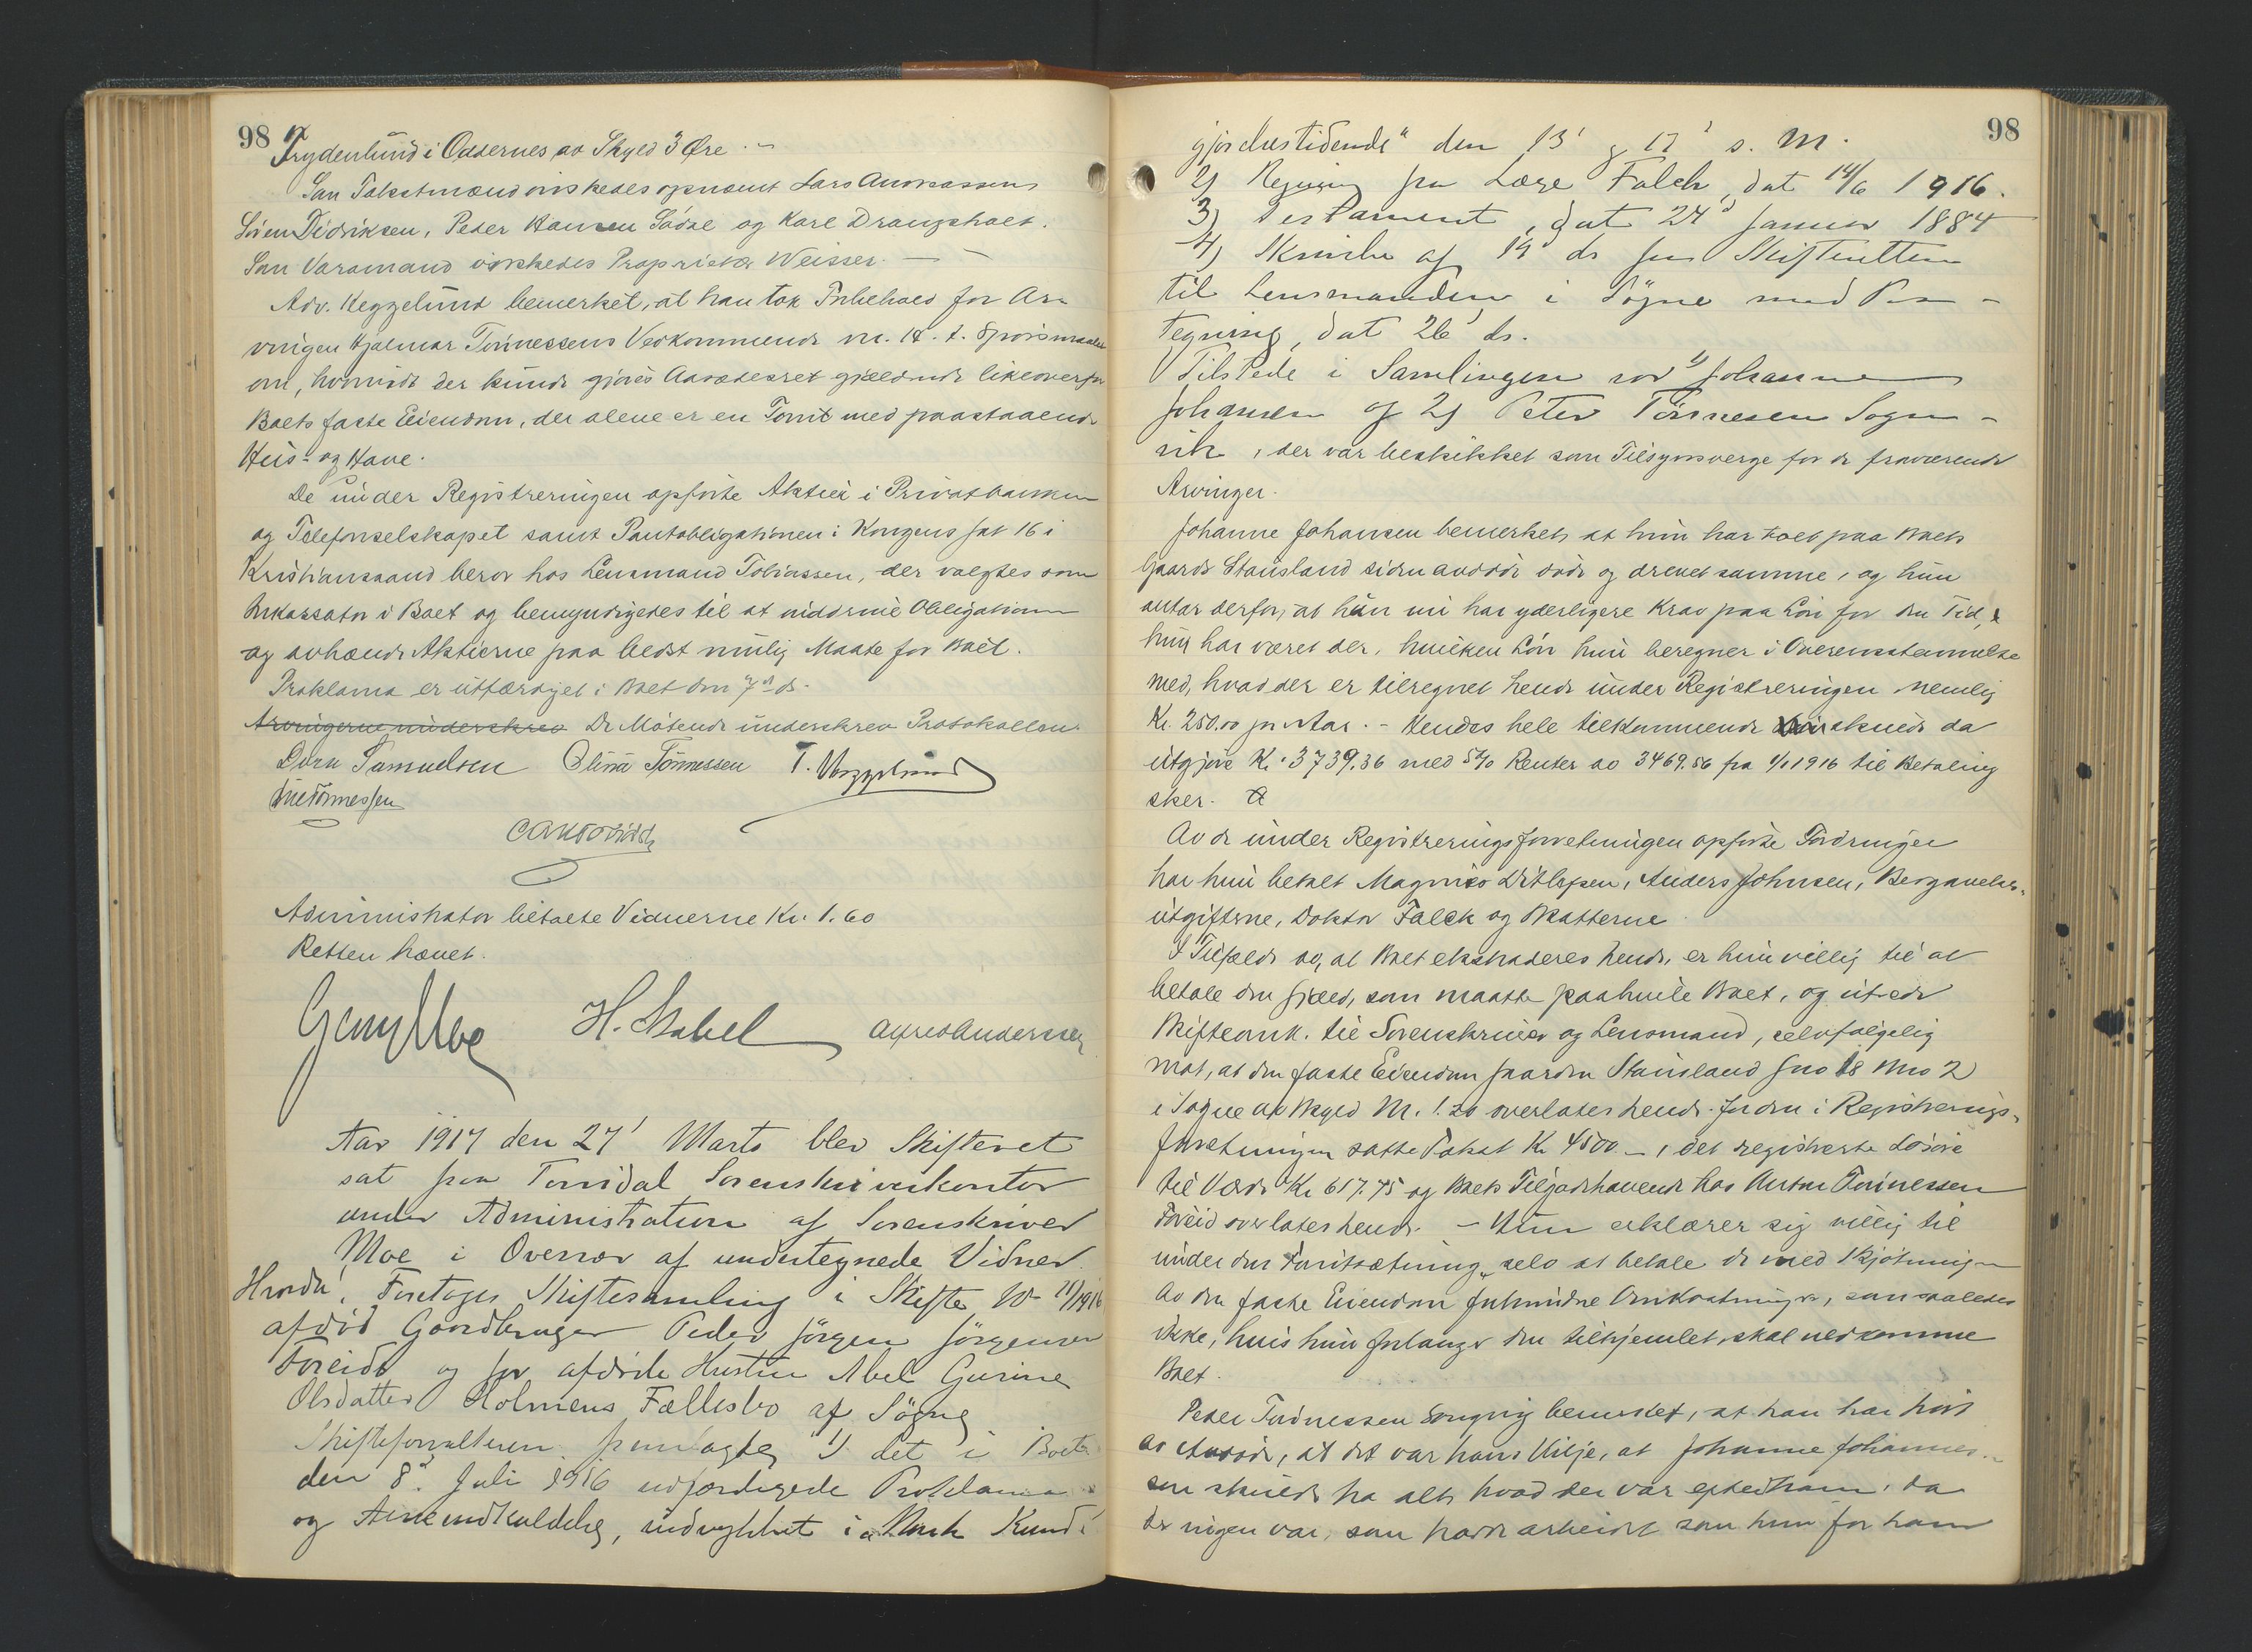 98
Frydenlund i Oddernes av Skyld 3 Øre. -
Som Takstmænd ønskedes opnævnt Lars Andreassen
Søren Didriksen, Peder Hansen Sødal og Karl Drangsholt.
Som Varamand ønskedes Proprietær Weisser. -
Adv. Heggelund bemerket, at han tok Forbehold for Ar-
vingen Hjalmar Tønnessens Vedkommende m. H. t. Spørsmaalet
om, hvorvidt der kunde gjøres Aasædesret gjældende likeoverfor
Boets faste Eiendom, der alene er en Tomt med paastaaende
Hus- og Have.
De under Registreringen opførte Aktier i Privatbanken
og Telefonselskapet samt Pantobligationen i Kongens gat 16 i
Kristianssand beror hos Lensmand Tobiassen, der valgtes som
Inkassator i Boet og bemyndigedes til at inddrive Obligationen
og avhænde Aktierne paa bedst mulig Maate for Boet.
Proklama er utfærdiget i Boet den 7' ds.
Arvingerne underskrev De Møtende underskrev Protokollen.
Dora Samuelsen Olina Tønnessen T. Heggelund
Tønnessen
Administrator betalte Vidnerne Kr. 1.60
Retten hævet.
Moe H. Stabel Alfred Anderssen
Aar 1917 den 27' Marts blev Skifteret
sat paa Torridal Sorenskriverkontor
under Administration af Sorenskriver
Moe i Overvær af undertegnede Vidner.
Hvorda', Foretoges Skiftesamling i Skifte No 21/1916
afdød Gaardbruger Peder Jörgen Jörgensen
Töreid og før afdöde Hustru Abel Gurine
Olsdatter Holmens Fællesbo af Sögne
Skifteforvalteren fremlagte 1) det i Boet
den 8' Juli 1916 udfærdigede Proklama
og Arveindkaldelse, indrykket i „Norsk Kund-
98
gjörelsestidende" den 13' og 17' s. M.
2) Regning fra Læge Falck, dat 14/6 1916.
3) Testament, dat 24' Januar 1884
4) Skrivelse af 19' ds fra Skifteretten
til Lensmanden i Sögne med Paa-
tegning, dat 26' ds.
Tilstede i Samlingen var 1) Johanne
Johansen og 2) Peter Tönnesen Sogn-
vik, der var beskikket som Tilsynsverge for de fraværende
Arvinger.
Johanne Johansen bemerket, at hun har boet paa Boets
Gaard Stausland siden avdøde døde og drevet samme, og hun
antar derfor, at hun nu har yderligere Krav paa Løn for den Tid,
hun har været der, hvilken Løn hun beregner i Overensstemmelse
med, hvad der er tilregnet hende under Registreringen nemlig
Kr. 250.00 pr Aar. - Hendes hele tilkommende skulde da
utgjøre Kr. 3739.36 med 5% Renter av 3469.56 fra 1/1 1916 til Betaling
sker.
Av de under Registreringsforretningen opførte Fordringer
har hun betalt Magnus Ditlefsen, Anders Johnsen, Begravelses-
utgifterne, Doktor Falck og Skatterne.
I Tilfælde av, at Boet ekstraderes hende, er hun villig til at
betale den Gjæld, som maatte paahvile Boet, og utrede
Skifteomk. til Sorenskriver og Lensmand, selvfølgelig
mot, at den faste Eiendom Gaarden Stausland Gno 18 Bno 2
i Søgne av Skyld M. 1.20 overlates hende for den i Registrerings-
forretningen satte Takst Kr 4500. -, det registrerte Løsøre
til Værdi Kr 617.75 og Boets Tilgodehavende hos Anton Tønnessen
Töreid overlates hende. - Hun erklærer sig villig til
under den Forutsætning, selv at betale de med Skjøtningen
av den faste Eiendom forbundne Omkostninger, som saaledes
ikke, hvis hun forlanger den tilhjemlet, skal vedkomme
Boet.
Peder Tønnessen Songvig bemerket, at han har hørt
av Avdøde, at det var hans Vilje, at Johanne Johannes-
sen skulde ha alt, hvad der var efter ham, da
der ingen var, som hadde arbeidet som hun for ham